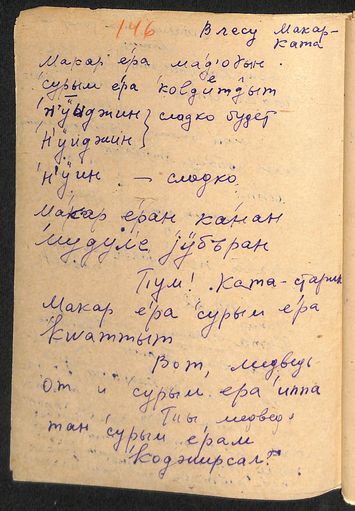 146
В лесу Макар-
Ката
Макар е́ра мад'о̄ӷын.
'сурым е́ра 'ковди́тдыт
'н'ӱ̄йджин } сладко будет
'н'ӱйджин
'н'ӱин — сладко
Макар е́ран ка́нан
'мудуме jӱбъран
Пум! Ката-старик
Макар е́ра 'сурым е́ра
'кwаттыт
Вот, медведь
от и 'сурым ера 'иппа
Ты медведь
тан 'сурым е́рам
'коджирсал?